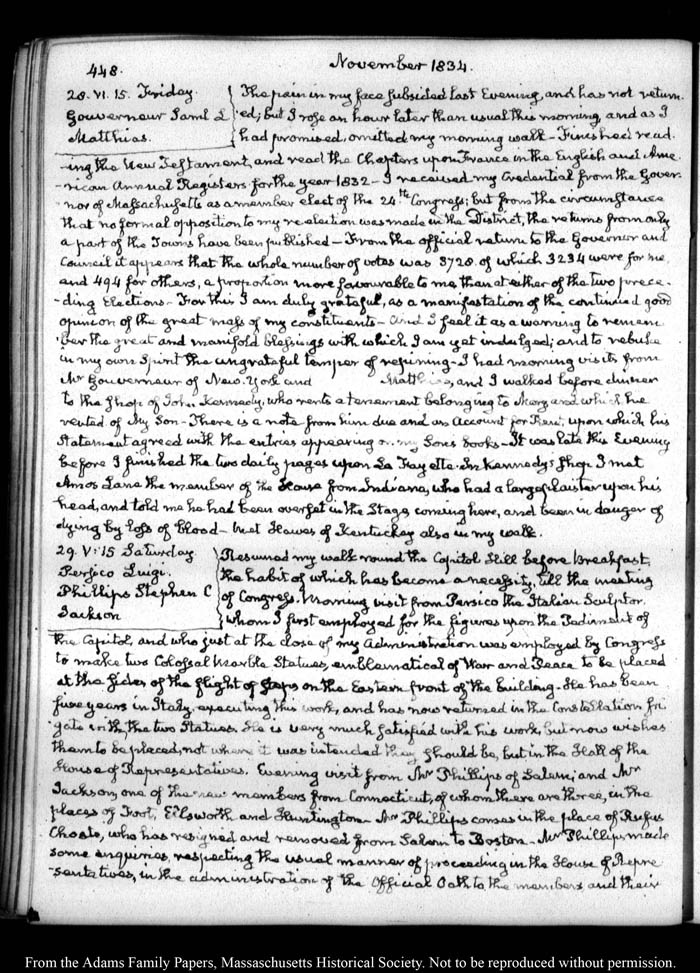 448.
November 1834.
28. VI. 15. Friday
Gouverneur Saml L
Matthias.
The pain in my face subsided last Evening, and has not return
'ed; but I rose an hour later than usual this morning, and as I
had promised, omitted my morning walk - Finished read
-ing the New Testament, and read the Chapters upon France in the English and Ame
-rican Annual Registers for the year 1832 - I received my Credential from the Gover
nor of Massachusetts as a member elect of the 24th Congress; but from the circumstance
that no formal opposition to my re-election was made in the District, the returns from only
a part of the Towns have been published - From the official return to the Governor and
Council it appears that the whole number of votes was 3728. of which 3234 were for me,
and 494 for others, a proportion more favourable to me than at either of the two prece
-ding Elections. For this I am duly grateful, as a manifestation of the continued good
opinion of the great mass of my constituents - And I feel it as a warning to remem
ber the great and manifold blessings with which I am yet indulged; and to rebuke
in my own Spirit the ungrateful temper of repining - I had morning visits from
Mr Gouverneur of New-York and Matthias, and I walked before dinner
to the Shop of John Kennedy, who rents a tenement belonging to Mary and which he
rented of My Son - There is a note from him due and an Account for Rent, upon which his
Statement agreed with the entries appearing on my Son's books - It was late this Evening
before I finished the two daily pages upon La Fayette. In Kennedy's Shop I met
Amos Lane the member of the House from Indiana, who had a large plaister upon his
head, and told me he had been overset in the Stage coming here, and been in danger of
dying by loss of blood - Met Hawes of Kentuckey also in my walk.
29. V: 15 Saturday
Persico Luigi.
Phillips Stephen C
Jackson
Resumed my walk round the Capitol Hill before breakfast,
the habit of which has become a necessity, till the meeting
of Congress. Morning visit from Persico the Italian Sculptor.
whom I first employed for the figures upon the Pediment of
the Capitol, and who just at the close of my Administration was employed by Congress
to make two Colossal Marble Statues, emblematical of War and Peace to be placed
at the sides of the flight of steps on the Eastern front of the building - He has been
five years in Italy, executing this work, and has now returned in the Constellation fri
gate with the two Statues. He is very much satisfied with his work, but now wishes
them to be placed, not where it was intended they should be, but in the Hall of the
House of Representatives. Evening visit from Mr Phillips of Salem, and Mr
Jackson one of the new members from Connecticut, of whom there are three, in the
places of Foot, Ellsworth and Huntington - Mr Phillips comes in the place of Rufus
Choate, who has resigned and removed from Salem to Boston - Mr Phillips made
some enquiries, respecting the usual manner of proceeding in the House of Repre
-sentatives, in the administration of the Official Oath to the members and their
From the Adams Family Papers, Massachusetts Historical Society. Not to be reproduced without permission.